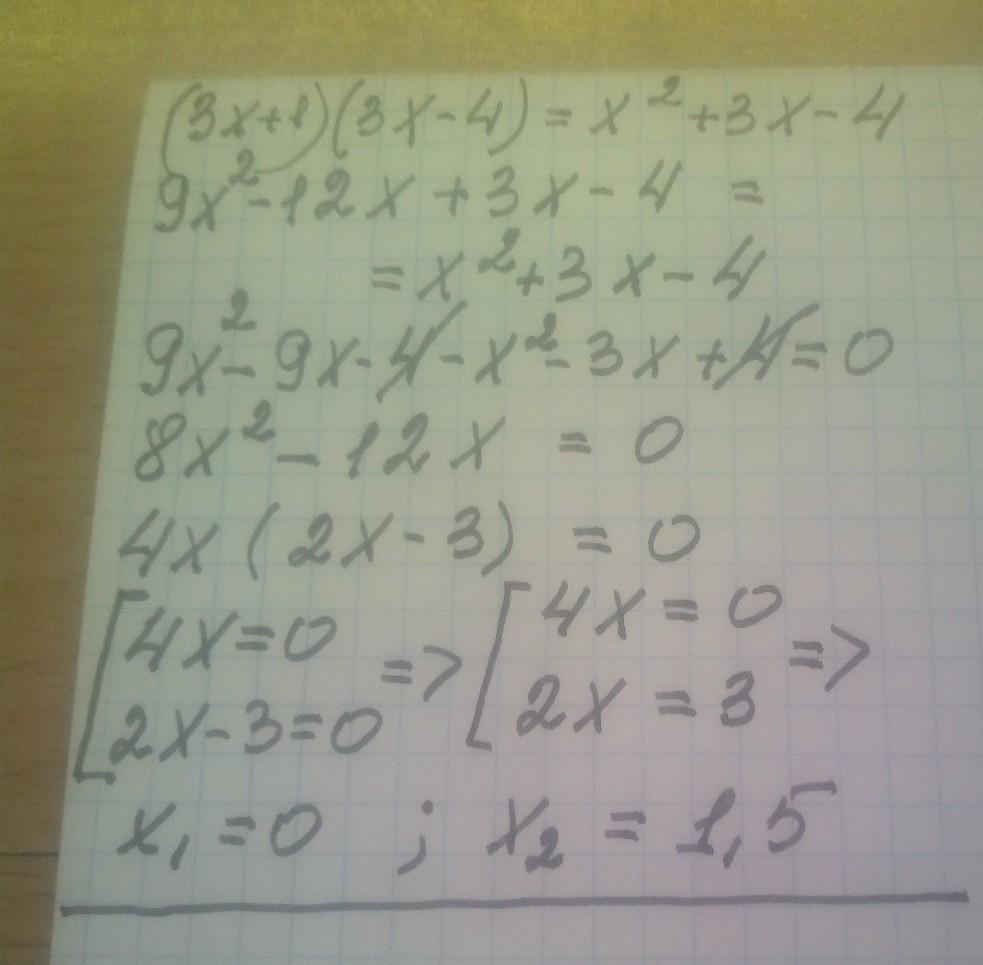 (3x+1)(3x-4) = x²+3x-4
9x²-12x+3x-4 =
= x²+3x-4
9x²-9x-4-x²-3x+4=0
8x²-12x = 0
4x(2x-3) = 0
[4x=0 => [4x=0 =>
2x-3=0 2x=3
x₁=0 ; x₂=1,5